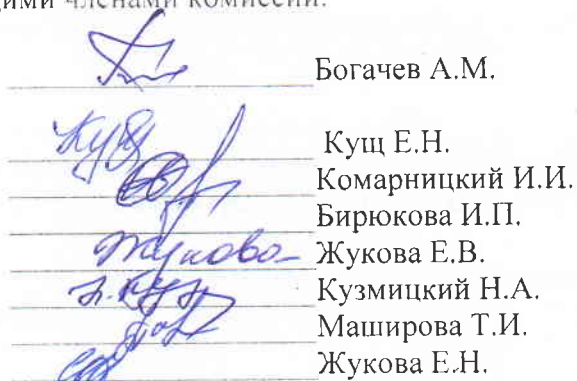 членами комиссии.
Богачев А.М.
Кущ Е.Н.
Комарницкий И.И.
Бирюкова И.П.
Жукова Жукова Е.В.
Кузмицкий Н.А.
Маширова Т.И.
Жукова Е.Н.